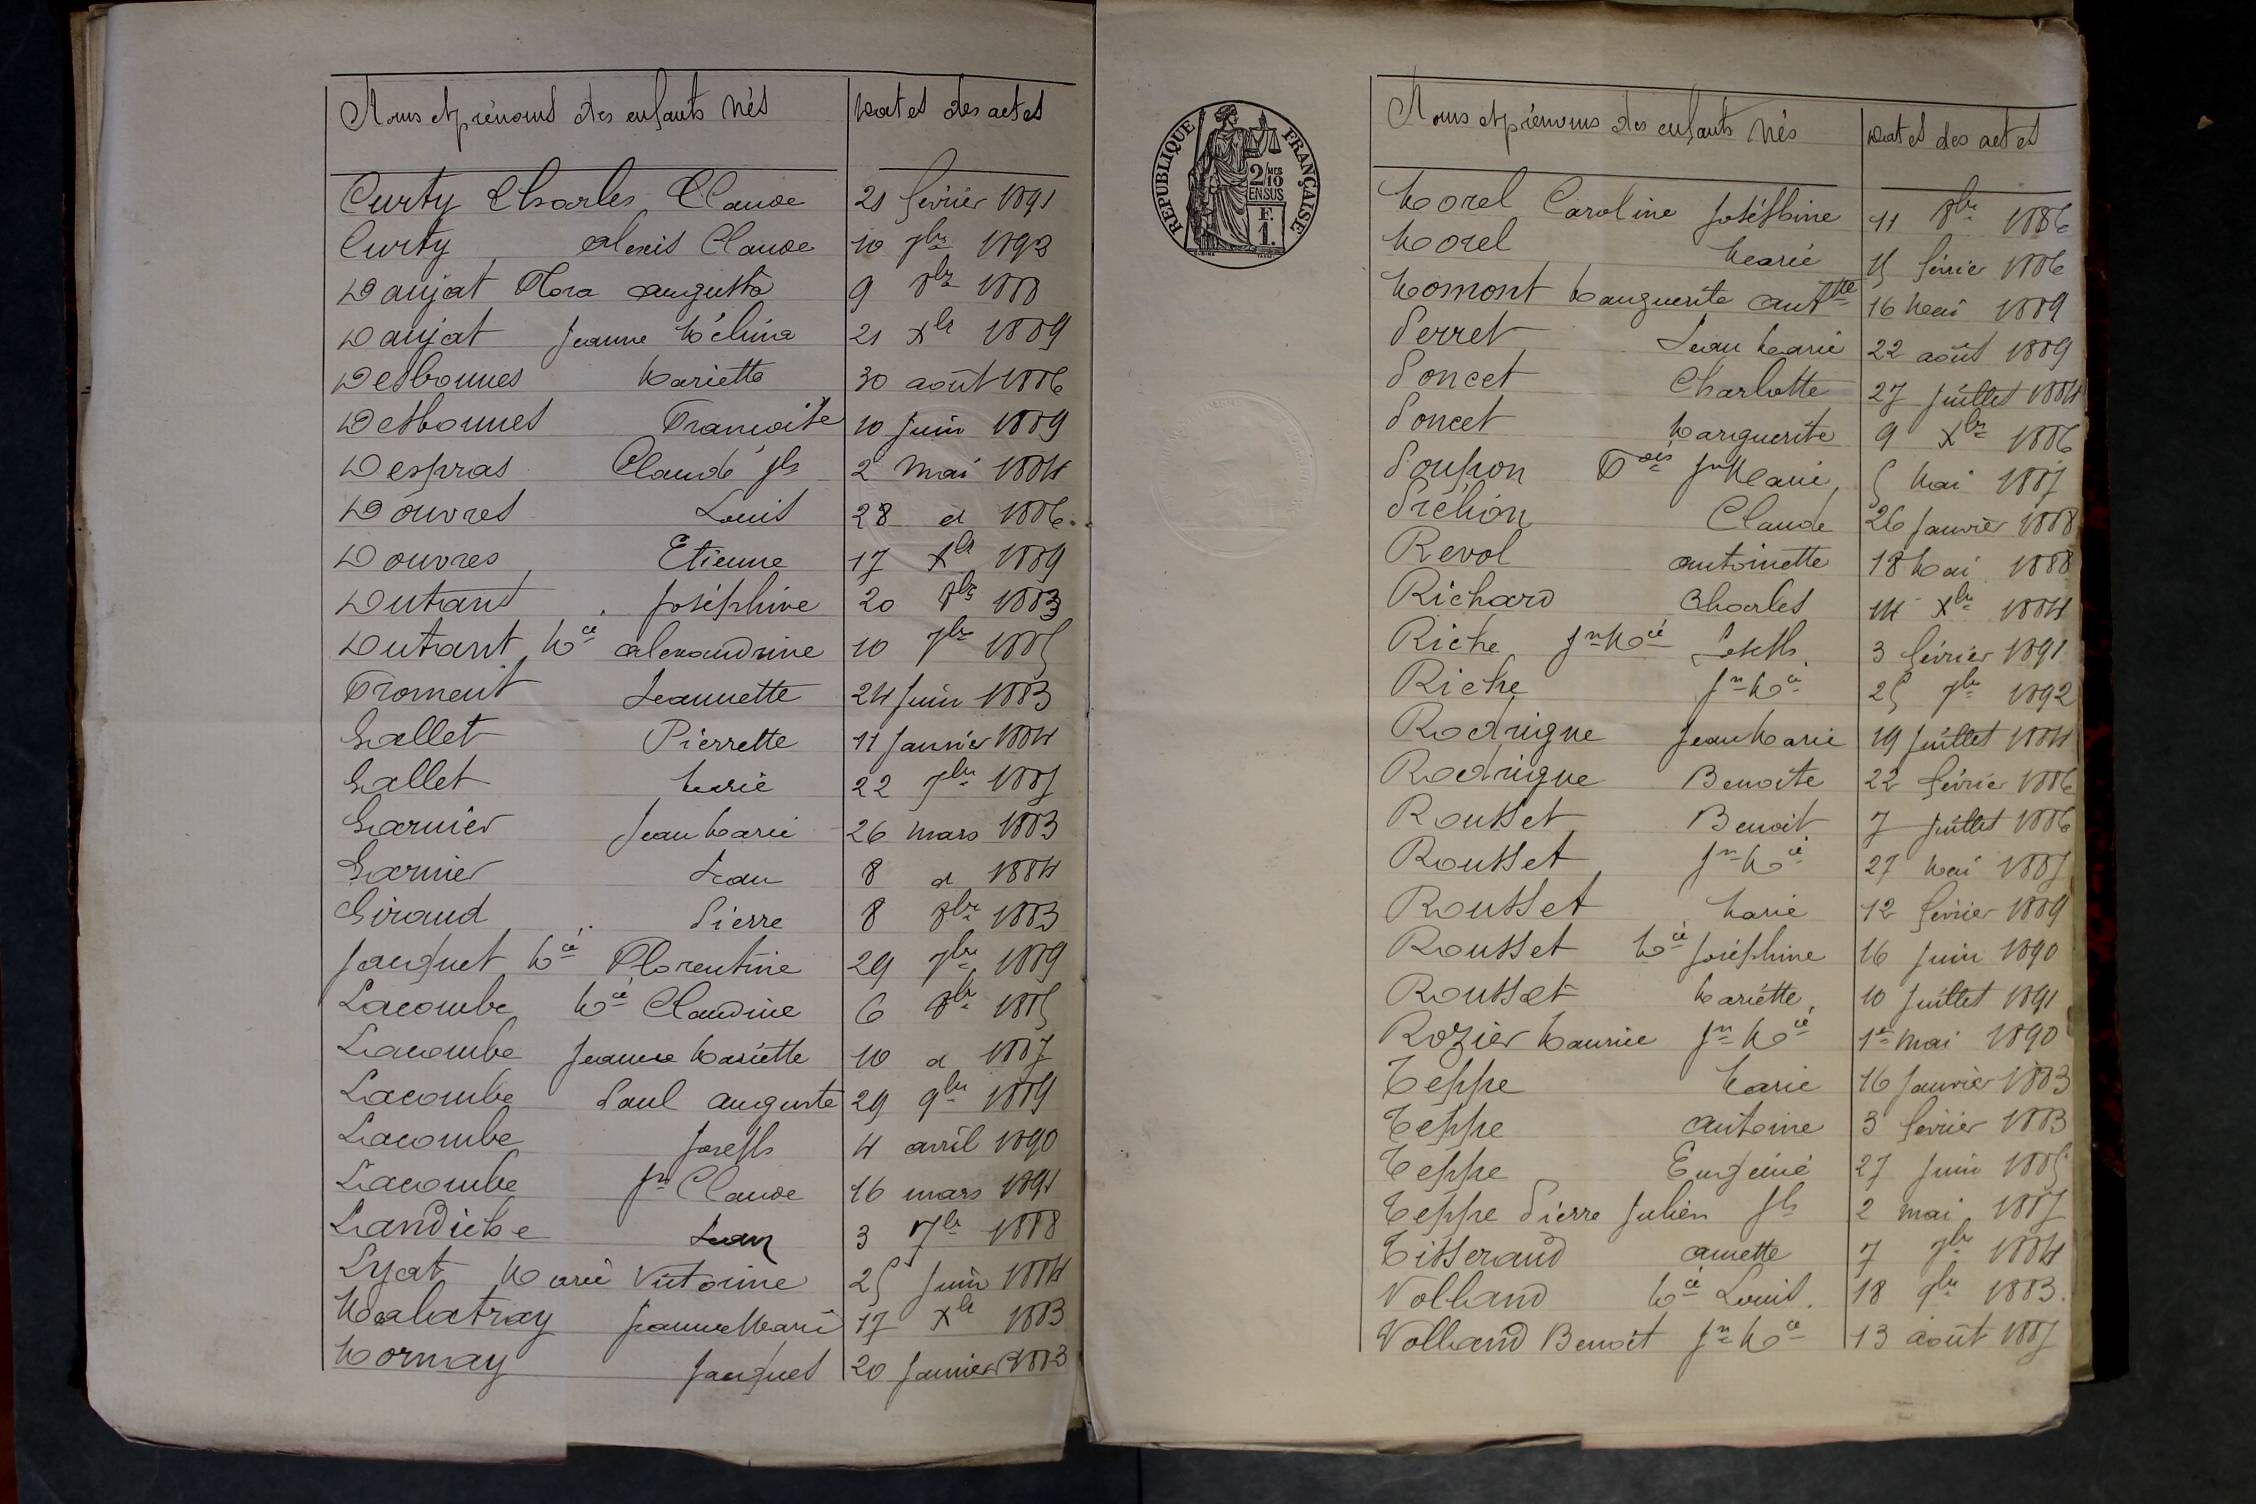 Noms et prénoms des enfants nés Dates des actes
Curty Charles Claude 21 février 1891
Curty Alexis Claude 10 7bre 1892
Danjat Flora Augusta 9 8bre 1888
Danjat Jeanne Mélina 21 Xbre 1889
Desbonnes Mariette 30 août 1886
Desbonnes Françoise 10 juin 1889
Despras Claude Jh 2 mai 1884
Douvres Louis 28 d 1886
Douvres Etienne 17 Xbre 1889
Dutrant Joséphine 20 8bre 1883
Dutrant Mie Alexandrine 10 7bre 1885
Froment Jeannette 24 juin 1883
Gallet Pierrette 11 janvier 1884
Gallet Marie 22 7bre 1885
Garnier Jean Marie 26 mars 1883
Garnier Jean 8 d 1884
Giraud Pierre 8 8bre 1883
Jacquet Mie Florentine 29 7bre 1889
Lacombe Mie Claudine 6 8bre 1885
Lacombe Jeanne Mariette 10 d 1887
Lacombe Paul Auguste 29 9bre 1889
Lacombe Joseph 4 avril 1890
Lacombe Jn Claude 16 mars 1891
Landiche Jean 3 7bre 1888
Lyat Marie Victorine 25 juin 1884
Malatray Jeanne Marie 17 Xbre 1883
Mornay Jacques 20 janvier 1883
RÉPUBLIQUE FRANÇAISE
2/10 MES
EN SUS
F.
1.
Noms et prénoms des enfants nés Dates des actes
Morel Caroline Joséphine 11 8bre 1886
Morel Marie 15 février 1886
Momont Marguerite Anttte 16 Mai 1889
Perret Jean Marie 22 août 1889
Poncet Charlotte 27 juillet 1884
Poncet Marguerite 9 Xbre 1886
Poupon Fois Jn Marie 5 Mai 1887
Préhon Claude 26 janvier 1888
Revol Antoinette 18 Mai 1888
Richard Charles 14 Xbre 1884
Riche Jn Mie Joseph 3 février 1891
Riche Jn Mie 25 7bre 1892
Rodrigue Jean Marie 19 juillet 1884
Rodrigue Benoite 22 février 1886
Rousset Benoit 7 juillet 1886
Rousset Jn Mie 27 Mai 1887
Rousset Marie 12 février 1889
Rousset Mie Joséphine 16 juin 1890
Rousset Mariette 10 juillet 1891
Rozier Maurice Jn Mie 1er mai 1890
Teppe Marie 16 janvier 1883
Teppe Antoine 3 février 1883
Teppe Eugénie 27 juin 1885
Teppe Pierre Julien Jh 2 mai 1887
Tisserand Annette 7 7bre 1884
Volland Mie Louis 18 9bre 1883
Volland Benoit Jn Mie 13 août 1887